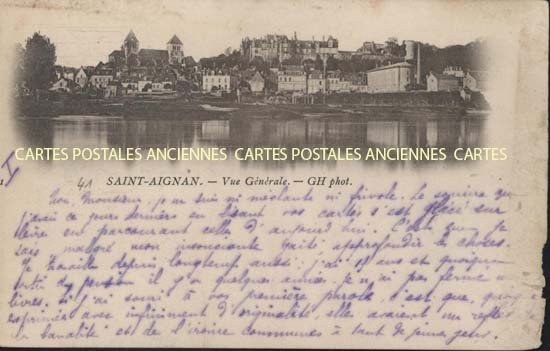 CARTES POSTALES ANCIENNES CARTES POSTALES ANCIENNES CARTES
41 SAINT-AIGNAN. — Vue Générale. — GH phot.
Non, Monsieur, je ne suis ni méchante ni frivole. Le sourire que
j'avais ce jours derniers en lisant vos cartes s'est glacé sur
lèvres en parcourant celle d'aujourd'hui. C'est que je
sais malgré mon insouciante gaité, approfondir les choses.
Je travaille depuis longtemp aussi; j'ai 19 ans et quoique
sortie de pension il y a quelques années, je n'ai pas fermé
livres. Si j'ai souri à vos première parole, c'est que, quoique
exprimées avec infiniment d'originalité, elle avaient un reflet
banalité et de l'ironie communes à tant de jeunes gens.